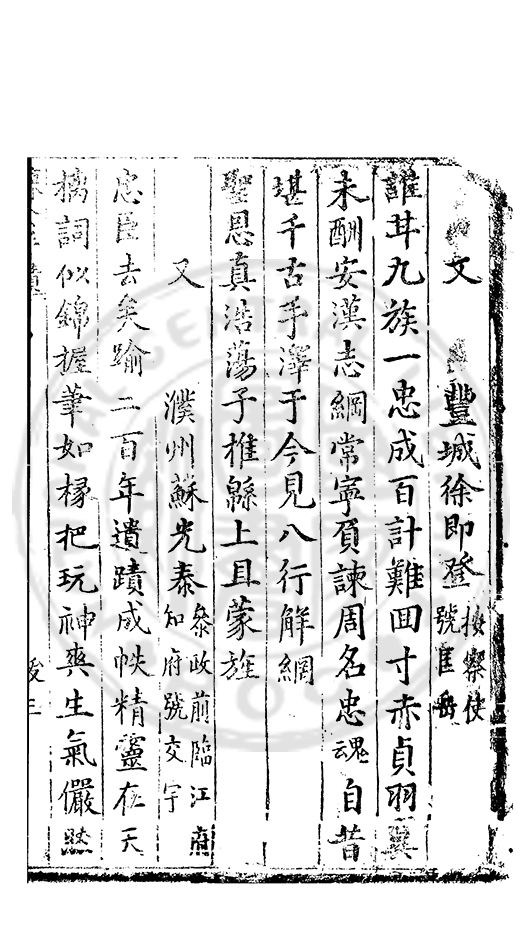 文 豐城徐即登 按察使號匡嶽
誰甘九族一忠成百計難回寸赤貞羽翼
未酬安漢志綱常寧負諫周名忠魂自昔
堪千古手澤于今見八行解網
聖恩真浩蕩子推緜上且蒙旌
又 濮州蘇光泰 叅政前臨江府知府號交宇
忠臣去矣踰二百年遺蹟成帙精靈在天
摛詞似錦握筆如椽把玩神爽生氣儼然